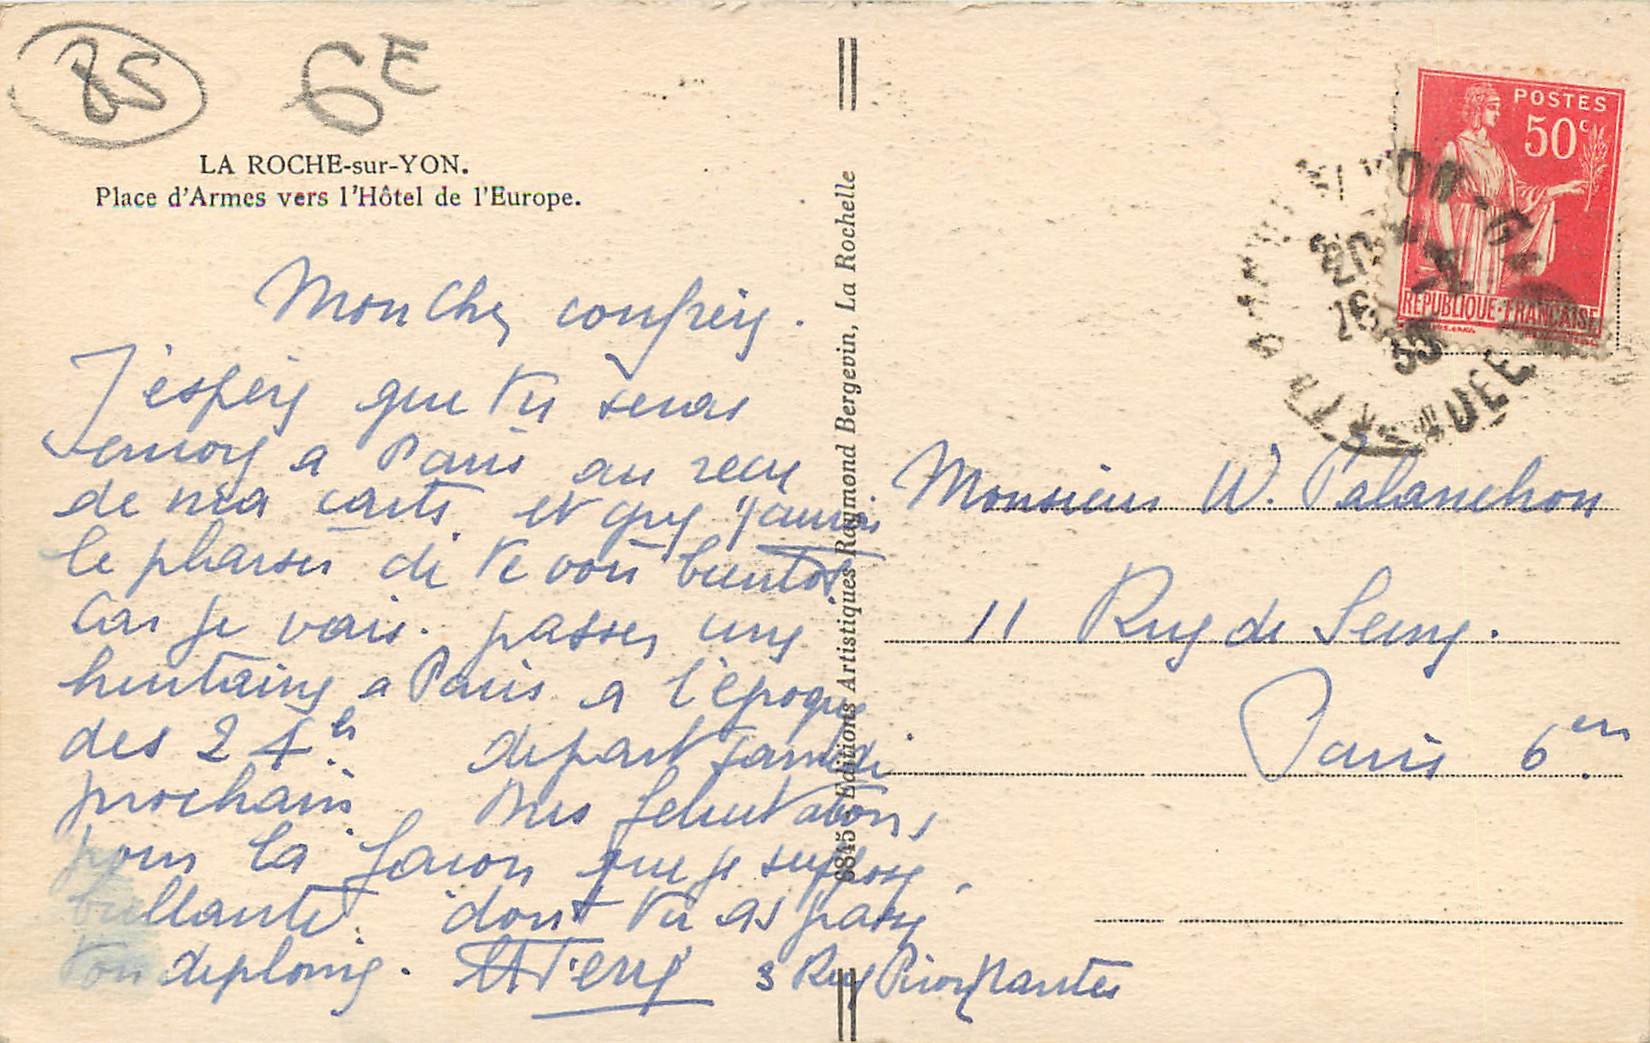 85
6E
LA ROCHE-sur-YON.
Place d'Armes vers l'Hôtel de l'Europe.
Mon Cher confrère.
J'espère que tu seras
encore a Paris au recu
de ma carte. et que j'aurai
le plaisir de te voir bientot.
Car je vais. passer une
huitaine a Paris a l'époque
des 24h. depart samedi
prochain. Mes felicitations
pour la facon que je suppose,
brillante. dont tu as passé
ton diplome.
3 Rue Nantes
6845 - Editions Artistiques Raymond Bergevin, La Rochelle
POSTES
50c
REPUBLIQUE-FRANÇAISE
Monsieur W. Palanchon
11 Rue de Seine.
Paris 6em